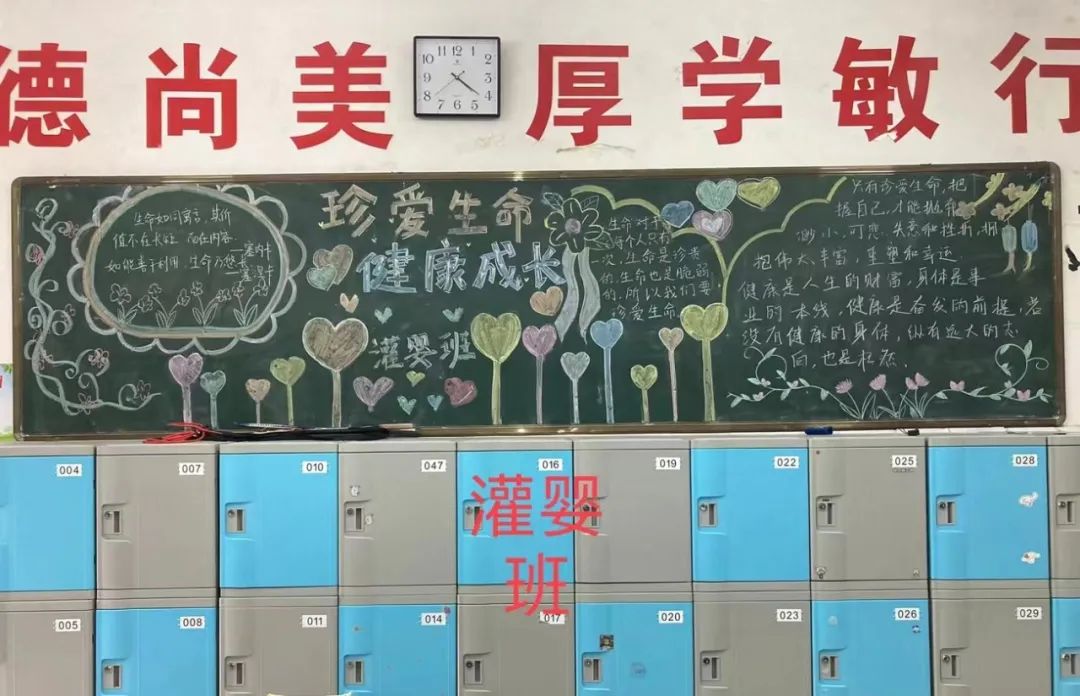 德尚美 厚学敏行
11 12 1
10 2
9 3
8 4
7 6 5
生命如同寓言，其价
值不在长短，而在内容。
如能善于利用，生命乃悠长
塞内卡
塞涅卡
珍爱生命
健康成长
灌婴班
生命对于
每个人只有
一次，生命是珍贵
的，生命也是脆弱
的，所以我们要
珍爱生命
只有珍爱生命，把
握自己，才能抛弃
渺小、可悲、失意和挫折，拥
抱伟大、丰富，重塑和幸运。
健康是人生的财富，身体是事
业的本钱，健康是奋发的前提，若
没有健康的身体，纵有远大的志
向，也是枉然.
004 007 010 047 016 019 022 025 028
灌婴
班
005 008 011 014 017 020 023 026 029